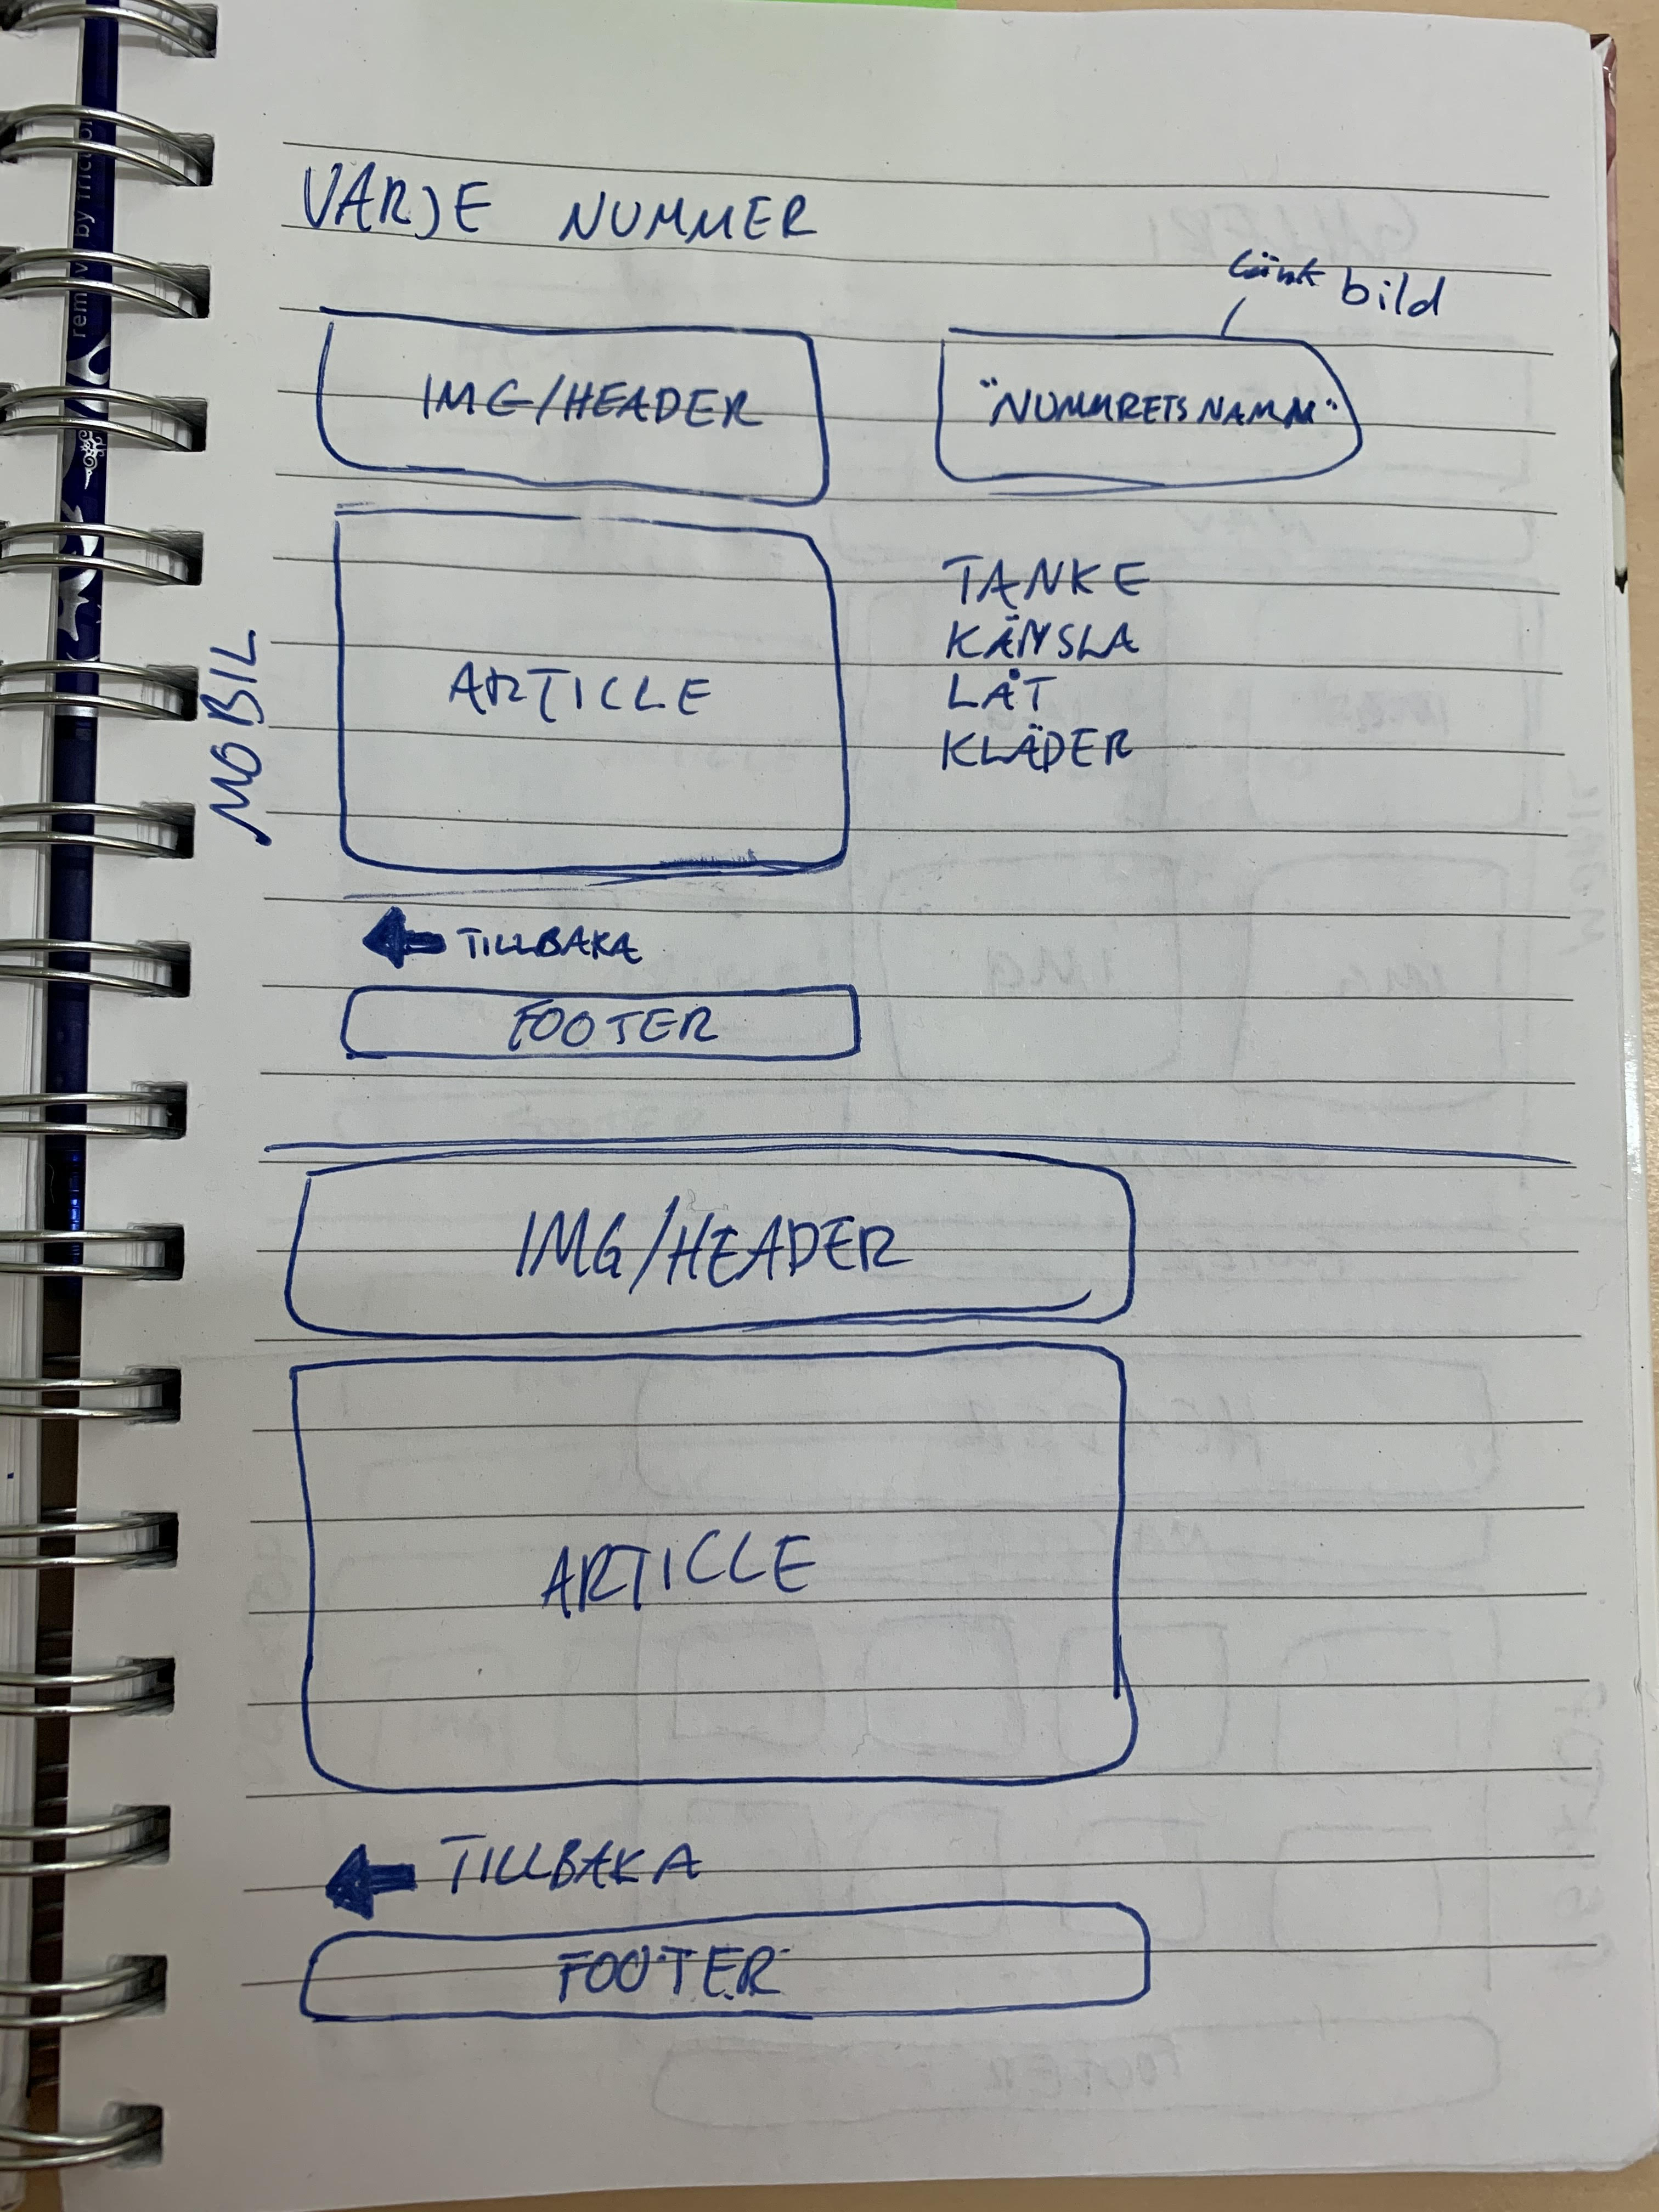 VARJE NUMMER
länk bild
IMG/HEADER
"NUMMRETS NAMM"
ARTICLE
TANKE
KÄNSLA
LÅT
KLÄDER
MOBIL
TILLBAKA
FOOTER
IMG/HEADER
ARTICLE
TILLBAKA
FOOTER